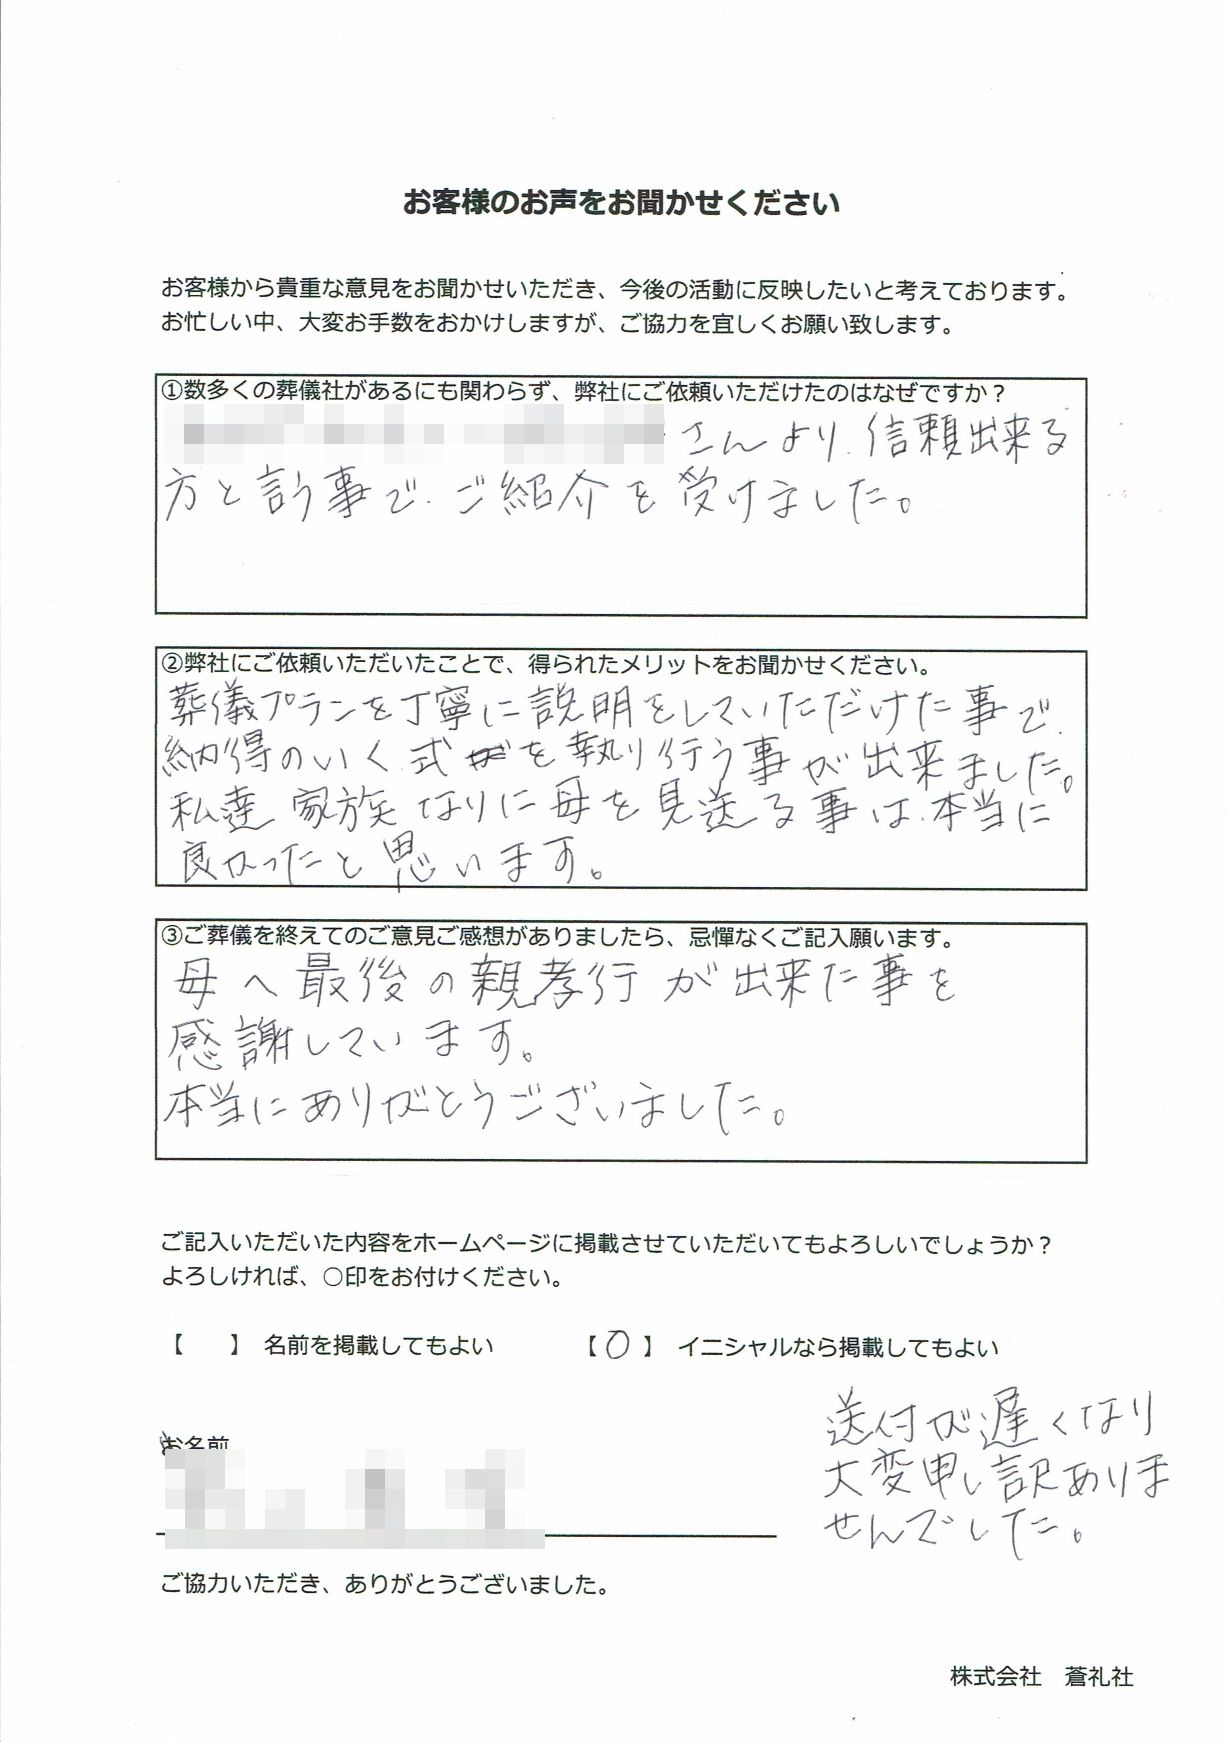 お客様のお声をお聞かせください
お客様から貴重な意見をお聞かせいただき、今後の活動に反映したいと考えております。
お忙しい中、大変お手数をおかけしますが、ご協力を宜しくお願い致します。
①数多くの葬儀社があるにも関わらず、弊社にご依頼いただけたのはなぜですか？
さんより、信頼出来る
方と言う事で、ご紹介を受けました。
②弊社にご依頼いただいたことで、得られたメリットをお聞かせください。
葬儀プランを丁寧に説明をしていただけた事で、
納得のいく式を執り行う事が出来ました。
私達家族なりに母を見送る事は、本当に
良かったと思います。
③ご葬儀を終えてのご意見ご感想がありましたら、忌憚なくご記入願います。
母へ最後の親孝行が出来た事を
感謝しています。
本当にありがとうございました。
ご記入いただいた内容をホームページに掲載させていただいてもよろしいでしょうか？
よろしければ、○印をお付けください。
【　　】 名前を掲載してもよい　　【○】 イニシャルなら掲載してもよい
送付が遅くなり
大変申し訳ありま
せんでした。
お名前
ご協力いただき、ありがとうございました。
株式会社　蒼礼社